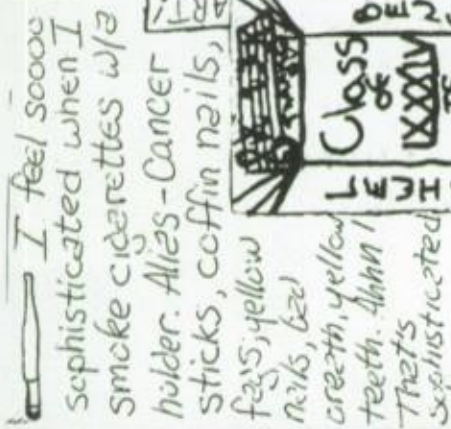 I feel soooo
sophisticated when I
smoke cigerettes w/a
holder. Alias - Cancer
sticks, coffin nails,
fags, yellow
nails, bad
breath, yellow
teeth. Ahhh!
That's
sophisticated
ART!
Class
OF